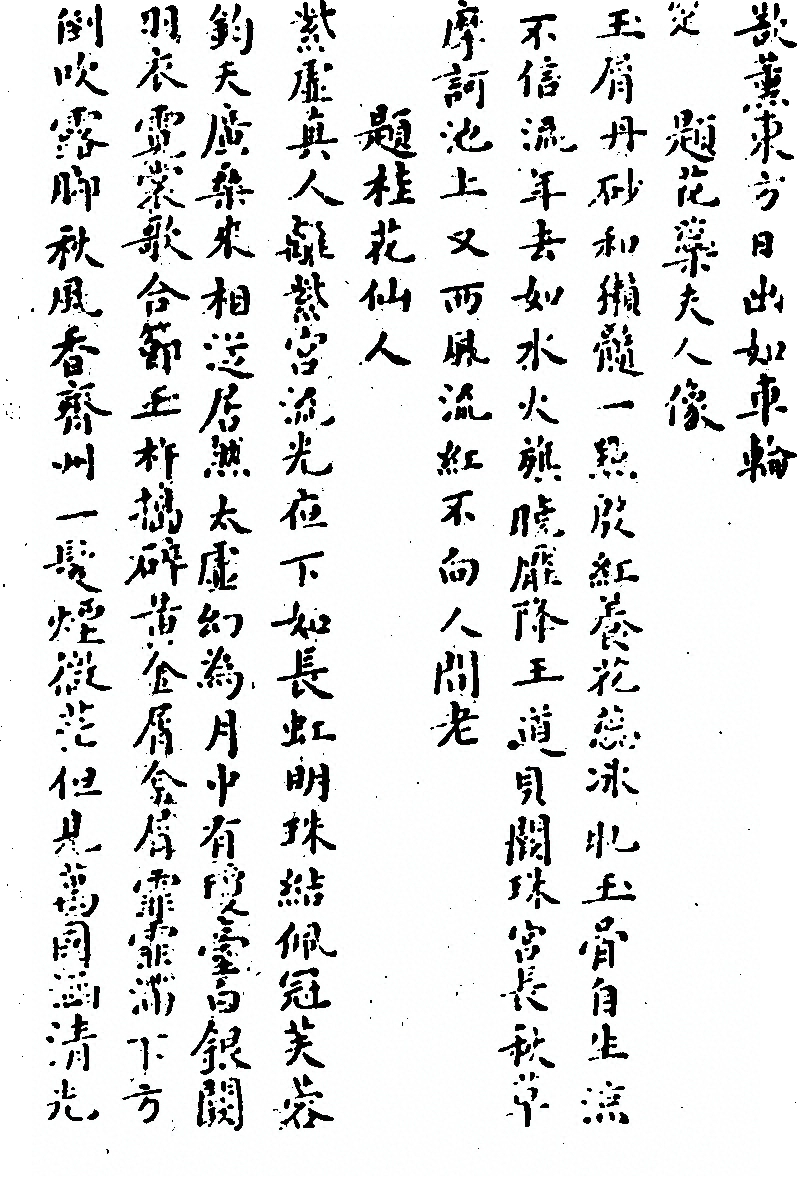 歘薰東方日出如車輪
題花蘂夫人像
玉屑丹砂和獺髓一點殷紅養花蕊冰肌玉骨自生涼
不信流年去如水火旗曉壓降王道貝闕珠宮長秋草
摩訶池上又西風流紅不向人間老
題桂花仙人
紫虛真人離紫宮流光夜下如長虹明珠結佩冠芙蓉
鈞天廣樂來相送居然太虛幻為月中有瓊臺白銀闕
羽衣霓裳歌合節玉杵搗碎黃金屑金屑霏霏滿下方
倒吹露腳秋風香齊州一髮煙微茫但見萬國涵清光